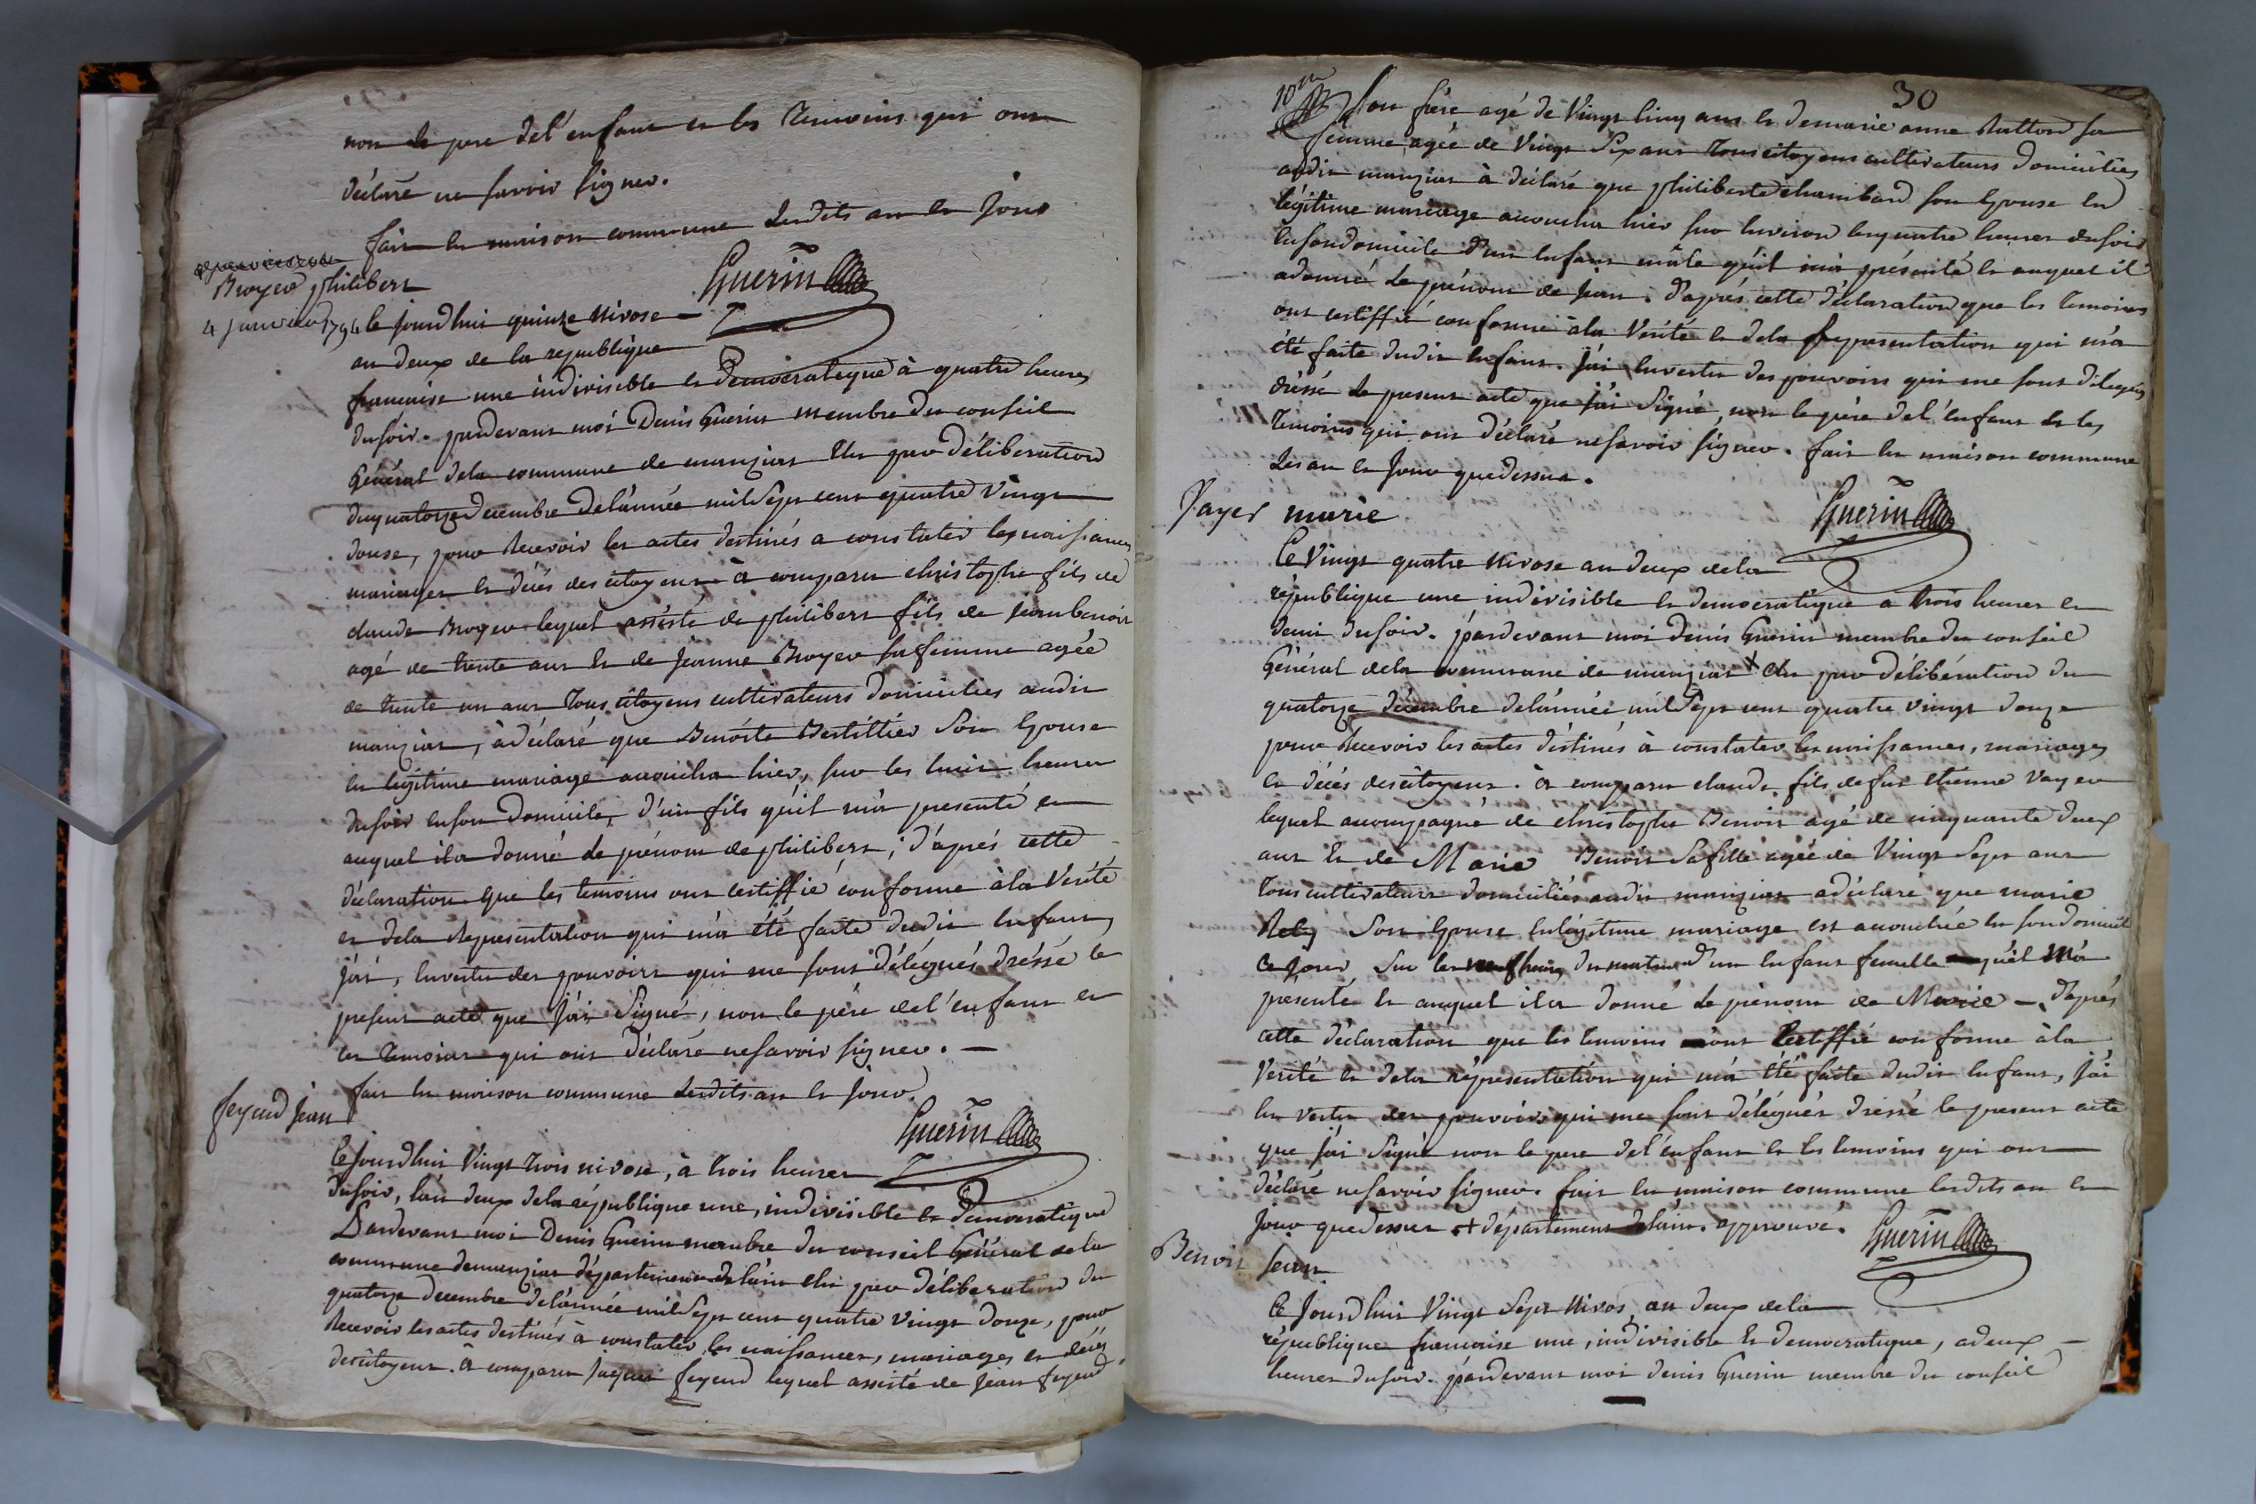 non le pere del'enfant et les temoins qui ont
déclaré ne savoir signer.
fait en maison commune lesdits an et jour
Guerin
Broyer philibert
4 janvier 1794 Ce jourdhui quinze nivose
an deux de la republique
francaise une indivisible et democratique à quatre heures
du soir. pardevant moi Denis Guerin membre du conseil
Général dela commune de manziat elu par délibération
du quatorze decembre de l'année mil sept cent quatre vingt
douze, pour recevoir les actes destinés a constater les naissances
mariages et décés des citoyens à comparu christophe fils de
claude Broyer lequel assisté de philibert fils de jean benoit
agé de trente ans et de jeanne Broyer sa femme agée
de trente un ans tous citoyens cultivateurs domiciliés audit
manziat, à déclaré que Benoite son Epouse
en légitime mariage accoucha hier, sur les huit heures
du soir en son domicile, d'un fils qu'il m'a presenté et
auquel il a donné le prénom de philibert; d'aprés cette
déclaration que les temoins ont certiffié conforme à la Verité
et dela représentation qui m'a été faite dudit enfant,
j'ai, en vertu des pouvoirs qui me sont délégués dréssé le
present acte que j'ai Signé, non le pére del'enfant et
les temoins qui ont déclaré ne savoir signer. —
fait en maison commune lesdits an et jour.
feyeud jean
Guerin
Ce jourdhui Vingt trois nivose, à trois heures
du soir, l'an deux dela république une, indivisible et Democratique
Pardevant moi Denis Guerin membre du conseil Général dela
commune de manziat département de l'ain elu par déliberation du
quatorze decembre de l'année mil sept cent quatre vingt douze, pour
Recevoir les actes destinés à constater les naissances, mariages et décés
des citoyens. à comparu jaques feyeud lequel assisté de jean feyeud
30
son frére agé de Vingt cinq ans et de marie anne sa
femme agée de Vingt Six ans tous citoyens cultivateurs domiciliés
audit manziat à déclaré que philiberte chambard son Epouse en
légitime mariage accoucha hier sur environ les quatre heures du soir
en son domicile d'un enfant mâle qu'il m'a présenté et auquel il
a donné le prénom de jean. d'aprés cette déclaration que les temoins
ont certiffié conforme à la Verité et dela représentation qui m'a
été faite dudit enfant. j'ai en vertu des pouvoirs qui me sont délegués
dréssé le present acte que j'ai Signé, non le pére del'enfant et les
temoins qui ont déclaré ne savoir signer. fait en maison commune
les an et jour que dessus.
Vayer marie
Guerin
Ce Vingt quatre nivose an deux dela
république une indivisible et democratique a trois heures et
demi du soir. pardevant moi denis Guerin membre du conseil
Général dela commune de manziat + elu par délibération du
quatorze décembre de l'année mil sept cent quatre vingt douze
pour recevoir les actes déstinés à constater les naissances, mariages
et décés des citoyens. à comparu claude fils de fut etienne Vayer
lequel accompagné de christophe Benoit agé de cinquante deux
ans et de Marie Benoit sa fille agée de Vingt Sept ans
tous cultivateurs domiciliés audit manziat a déclaré que marie
Son Epouse en légitime mariage est accouchée en son domicile
ce jour Sur les neuf heures du matin d'un enfant femelle qu'il m'a
présenté et auquel il a donné le prénom de Marie — d'aprés
cette déclaration que les temoins m'ont certiffié conforme à la
Verité et dela répresentation qui m'a été faite dudit enfant, j'ai
en vertu des pouvoirs qui me sont délégués dressé le present acte
que j'ai Signé non le pere del'enfant et les temoins qui ont
déclaré ne savoir signer. fait en maison commune lesdits an et
jour que dessus + département de l'ain. approuvé.
Guerin
Benoit jean
Ce Jourdhui Vingt Sept nivos an deux dela
république francaise une, indivisible et democratique, a deux —
heures du soir. pardevant moi denis Guerin membre du conseil